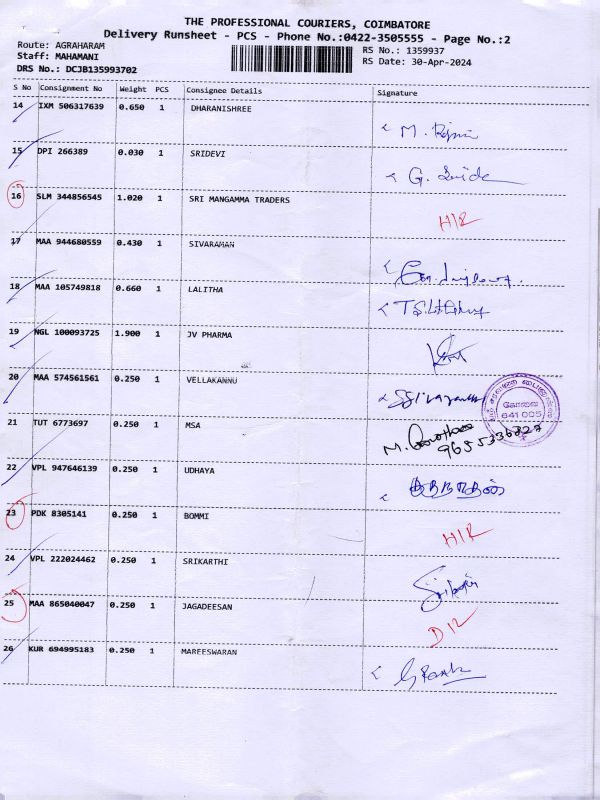 THE PROFESSIONAL COURIERS, COIMBATORE
Delivery Runsheet - PCS - Phone No.:0422-3505555 - Page No.:2
Route: AGRAHARAM RS No.: 1359937
Staff: MAHAMANI RS Date: 30-Apr-2024
DRS No.: DCJB135993702
S No Consignment No Weight PCS Consignee Details Signature
14 IXM 506317639 0.650 1 DHARANISHREE
M.
15 DPI 266389 0.030 1 SRIDEVI
G.
16 SLM 344856545 1.020 1 SRI MANGAMMA TRADERS
17 MAA 944680559 0.430 1 SIVARAMAN
18 MAA 105749818 0.660 1 LALITHA
19 NGL 100093725 1.900 1 JV PHARMA
20 MAA 574561561 0.250 1 VELLAKANNU
கோவை
641 005
21 TUT 6773697 0.250 1 MSA
M.
22 VPL 947646139 0.250 1 UDHAYA
23 PDK 8305141 0.250 1 BOMMI
24 VPL 222024462 0.250 1 SRIKARTHI
25 MAA 865040047 0.250 1 JAGADEESAN
26 KUR 694995183 0.250 1 MAREESWARAN